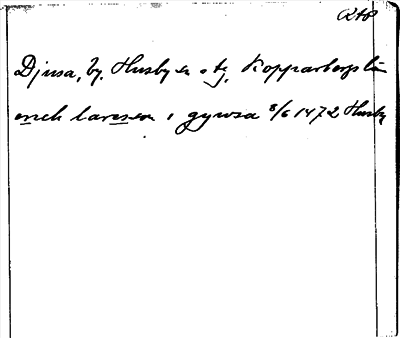 Djusa, by. Husby sn o tg. Kopparbergs län
mch larsson i gywsa 8/6 1472 Husby